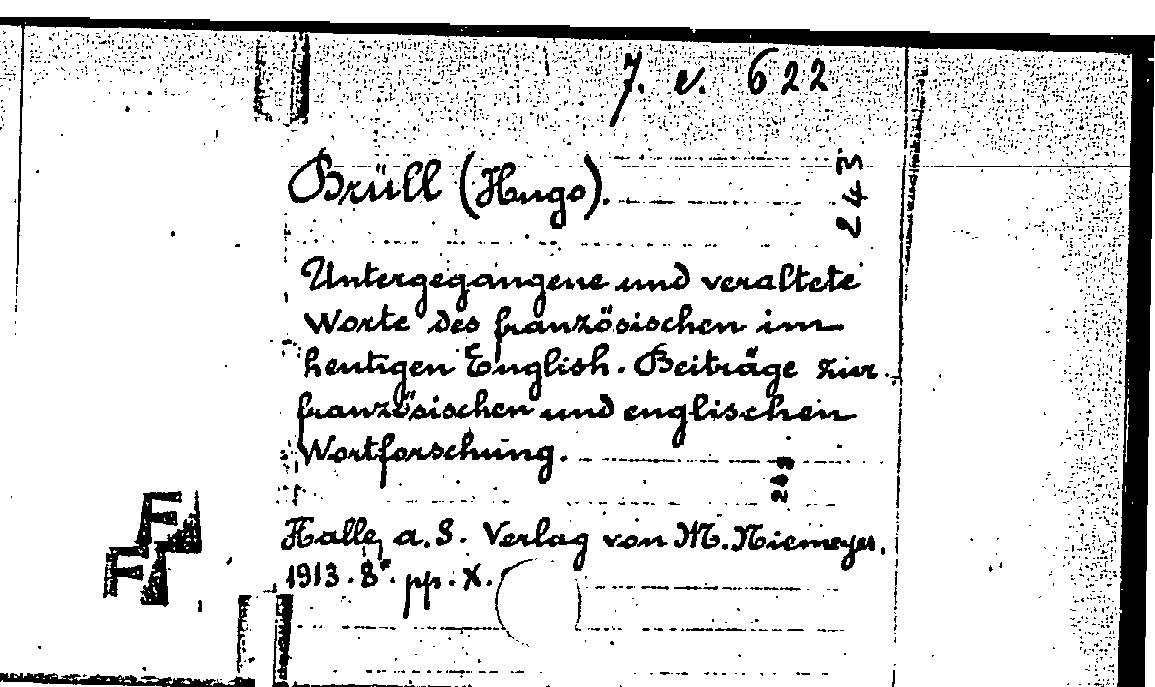 7. v. 622
Brüll (Hugo).
243
Untergegangene und veraltete
Worte des französischen im
heutigen English. Beiträge zur
französischen und englischen
Wortforschung.
243
Halle, a. S. Verlag von M. Niemeyer.
1913. 8°. pp. X.